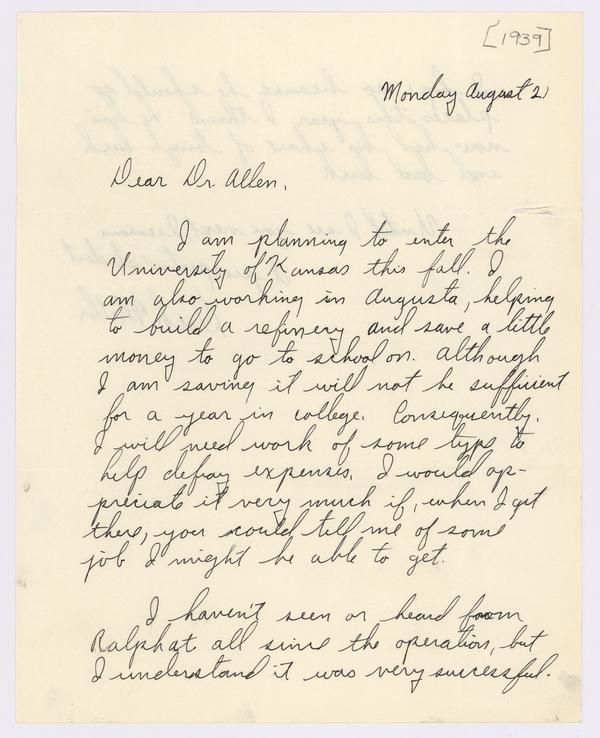 [1939]
Monday August 21
Dear Dr. Allen,
I am planning to enter the
University of Kansas this fall. I
am also working in Augusta, helping
to build a refinery and save a little
money to go to school on. Although
I am saving it will not be sufficient
for a year in college. Consequently,
I will need work of some type to
help defray expenses. I would ap-
preciate it very much if, when I get
there, you could tell me of some
job I might be able to get.
I haven't seen or heard from
Ralph at all since the operation, but
I understand it was very successful.